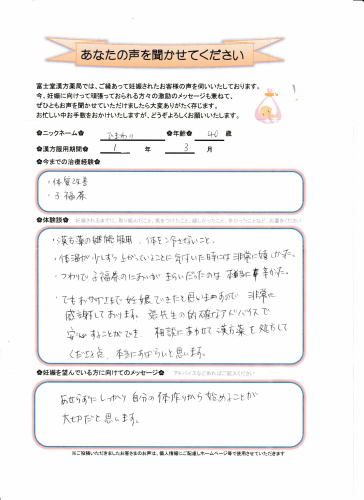 あなたの声を聞かせてください
富士堂漢方薬局では、ご縁あって妊娠されたお客様の声を伺いいたしております。
今、妊娠に向けって頑張っておられる方々の激励のメッセージも兼ねて、
ぜひともお声を聞かせていただけましたら大変ありがたく存じます。
お忙しい中お手数をおかけいたしますが、どうぞよろしくお願いいたします。
✿ニックネーム✿ ひまわり ✿年齢✿ 40 歳
✿漢方服用期間✿ 1 年 3 月
✿今までの治療経験✿
・体質改善
・子福茶
✿体験談✿
・漢方薬の継続服用、体を冷さないこと。
・体温が少しずつ上がっていることに気付いた時には非常に嬉しかった。
・つわりで子福茶のにおいがきらいだったのは本当に辛かった。
・でもおかげさまで妊娠できたと思いますので 非常に
感謝しております。張先生の的確なアドバイスで
安心することができ、相談にあわせて漢方薬を処方して
くださる点、本当にすばらしいと思います。
✿妊娠を望んでいる方に向けてのメッセージ✿ アドバイスなどあればご記入ください
あせらずに しっかり 自分の体作りから始めることが
大切だと思います。
※ご投稿いただきましたお客さまのお声は、個人情報にご配慮しホームページ等で使用させていただきます